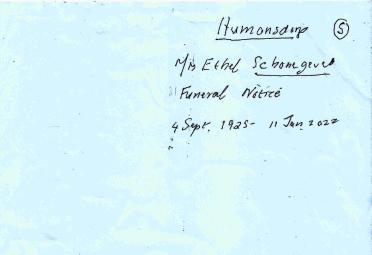 Humansdorp (5)
Mrs Ethel
Funeral Notice
4 Sept. 1925 - 11 Jan. 2022